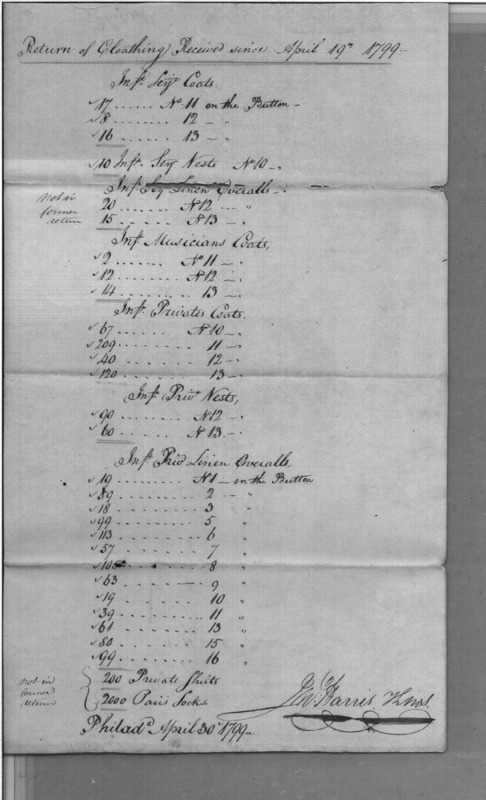 Return of Cloathing Received since April 19th 1799
Inf. Serj. Coats
17 ...... No. 11 on the Button -
8 ........ 12 - "
16 ....... 13 - "
10 Inf. Serj Vests No 10 - "
not in former return
Inf. Linen Overalls - "
20 ....... No 12 - "
15 ....... No 13 - "
Inf. Musicians Coats,
2 ....... No 11 - "
12 ....... No 12 - "
14 ........ 13 - "
Inf. Privates Coats.
67 ....... No 10 - "
209 ........ 11 - "
40 ........ 12 - "
120 ........ 13 - "
Inf. Priv. Vests,
90 ....... No 12 - "
60 ....... No 13 - "
Inf. Priv Linen Overalls
19 ........ No 1 - on the Button
39 ........ 2 - "
18 ........ 3 "
99 ........ 5 "
113 ........ 6 "
57 ........ 7 "
10 ........ 8 "
63 ........ 9 "
19 ........ 10 "
39 ........ 11 "
61 ........ 13 "
80 ........ 15 "
99 ........ 16 "
not in former return
200 Private Shirts
2000 Pairs Socks
Jno Harris
Philada April 30th 1799